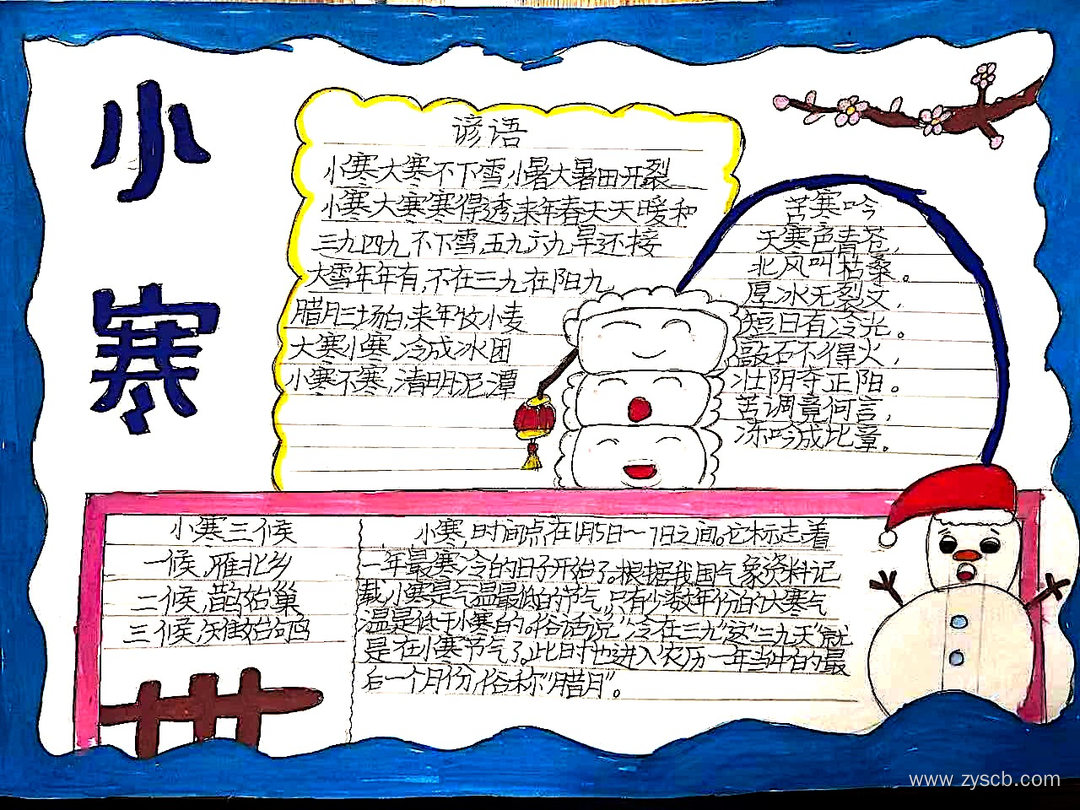 小
寒
谚语
小寒大寒不下雪,小暑大暑田开裂
小寒大寒寒得透来年春天天暖和
三九四九不下雪,五九六九旱还接
大雪年年有,不在三九在阳九
腊月三场白,来年饮小麦
大寒小寒冷成冰团
小寒不寒,清明泥潭
苦寒吟
天寒色青苍,
北风叫枯桑。
厚冰无裂文,
短日有冷光。
敲石不得火,
壮阴夺正阳。
苦调竟何言,
冻吟成此章。
小寒三候
一候,雁北乡
二候,鹊始巢
三候,雉始鸲
小寒,时间点在1月5日~7日之间。它标志着
一年最寒冷的日子开始了。根据我国气象资料记
载,小寒是气温最低的节气,只有少数年份的大寒气
温是低于小寒的。俗话说"冷在三九"这"三九天"就
是在小寒节气了。此时也进入农历一年当中的最
后一个月份,俗称"腊月"。
www.zyscb.com